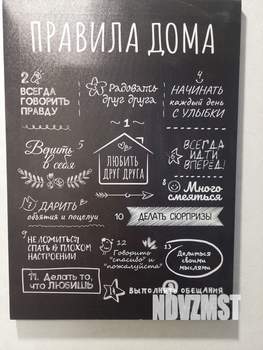 ПРАВИЛА ДОМА
2
ВСЕГДА
ГОВОРИТЬ
ПРАВДУ
Радовать
друг друга
НАЧИНАТЬ
каждый день
С УЛЫБКИ
1
ЛЮБИТЬ
ДРУГ ДРУГА
Верить 5
в себя
ВСЕГДА
ИДТИ
ВПЕРЕД!
ДАРИТЬ
объятия и поцелуи
8 Много
смеяться
10 ДЕЛАТЬ СЮРПРИЗЫ
9 НЕ ЛОЖИТЬСЯ
СПАТЬ В ПЛОХОМ
НАСТРОЕНИИ
12
Говорить
"спасибо" и
"пожалуйста"
13
Делиться
своими
мыслями
11. Делать то,
что ЛЮБИШЬ
ВЫПОЛНЯТЬ ОБЕЩАНИЯ
NDVZMST